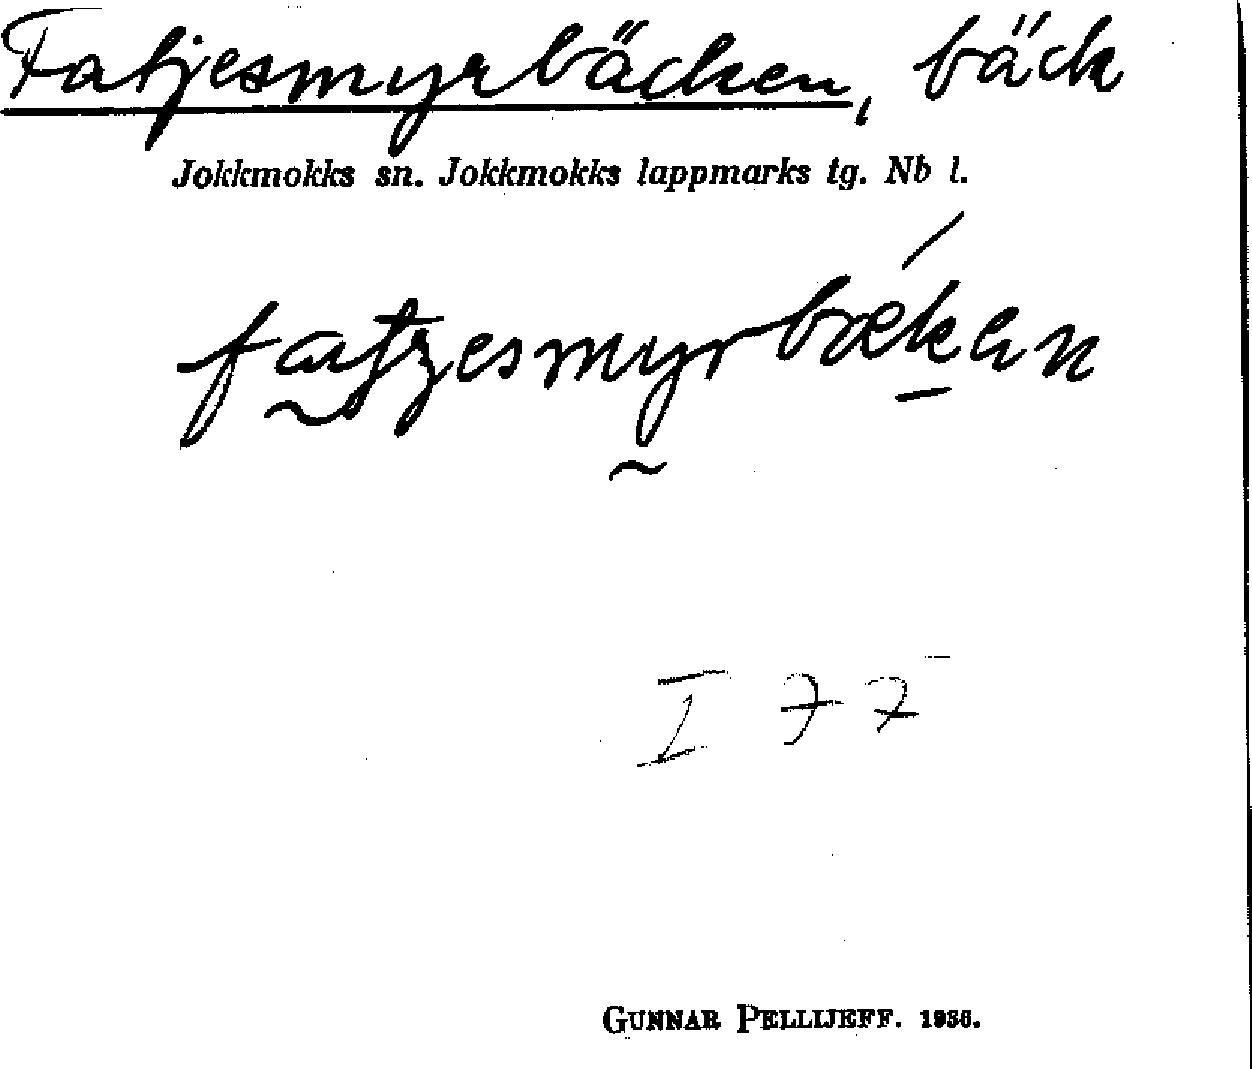 Fatjesmyrbäcken, bäck
Jokkmokks sn. Jokkmokks lappmarks tg. Nb l.
I 77
GUNNAR PELLIJEFF. 1936.